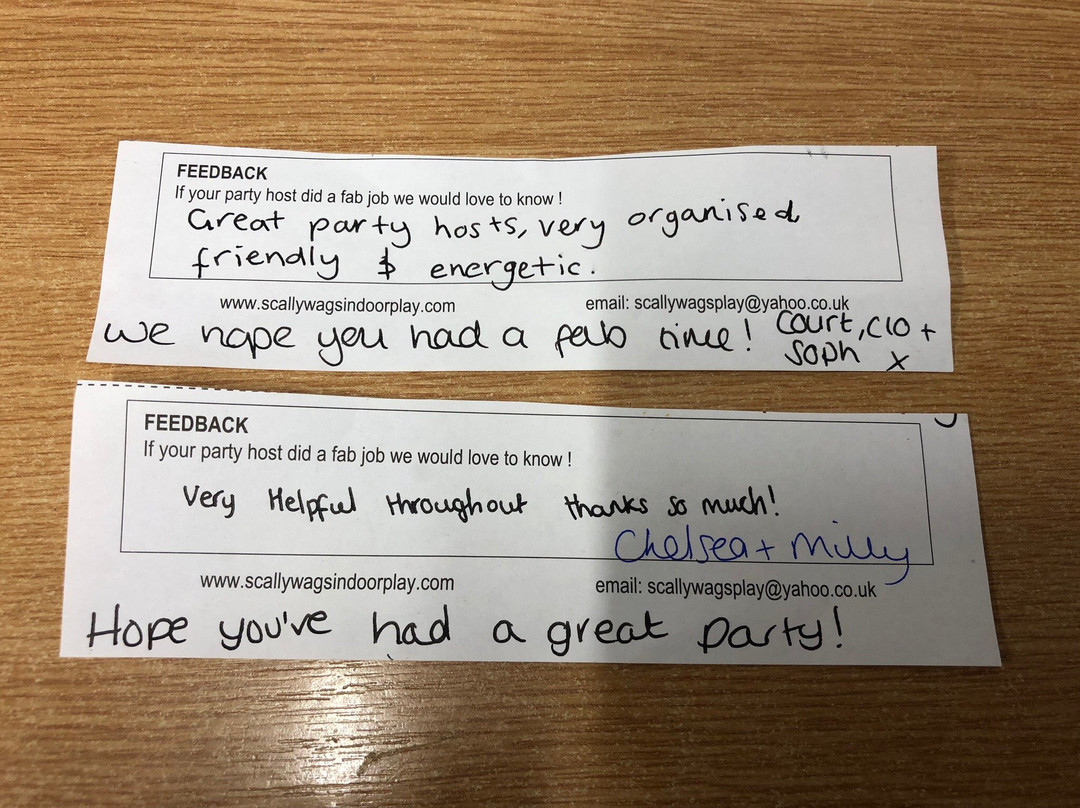 FEEDBACK
If your party host did a fab job we would love to know !
Great party hosts, very organised
friendly & energetic.
www.scallywagsindoorplay.com email: scallywagsplay@yahoo.co.uk
We hope you had a fab time! Court, Clo +
Soph x
FEEDBACK
If your party host did a fab job we would love to know !
Very Helpful throughout thanks so much!
Chelsea + Milly
www.scallywagsindoorplay.com email: scallywagsplay@yahoo.co.uk
Hope you've had a great party!